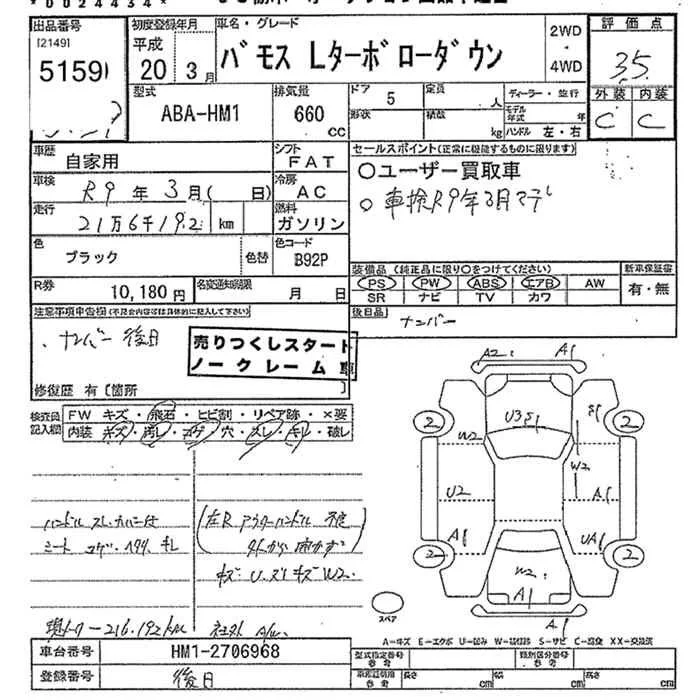 出品番号 初度登録年月 車名・グレード 2WD・4WD 評価点
[2149] 平成
5159 20年3月 バモス Lターボローダウン 3.5
型式 排気量 ドア 定員 ディーラー・並行 外装 内装
ABA-HM1 660 CC 5 人 モデル年式 年 C C
形状 積載 kg ハンドル 左・右
車歴 自家用 シフト FAT セールスポイント(正常に機能するものに限ります)
車検 R9年3月(日) 冷房 AC 〇ユーザー買取車
走行 21万6千192 km 燃料 ガソリン 〇車検R9年3月マデ
色 ブラック 色替 色コード B92P
装備品(純正品に限り〇をつけてください) 新車保証書
PS PW ABS エアB AW 有・無
SR ナビ TV カワ
R券 10,180円 名変通知期限 月 日
後日品 ナンバー
注意事項申告欄(不具合内容等は具体的に記入して下さい)
・ナンバー後日
売りつくしスタート
ノークレーム車
修復歴 有〔箇所 〕
検査員記入欄
FW キズ・飛石・ヒビ割・リペア跡・×要
内装 キズ・汚レ・コゲ・穴・スレ・キレ・破レ
A2 A1
2 2
U3S1 S1
W2 W2
U2 A1
A1 UA1
2 2
W2
A1
A1
スペア
ハンドルスレ.カバー付
シート コゲ・ヘタリ キレ
(左R アウターハンドル 不良
外から開かず)
キズ・U.ズレキズW2.
現メーター216.192km 社外A/W.
A-キズ E-エクボ U-凹み W-補修跡 S-サビ C-腐食 XX-交換済
車台番号 HM1-2706968
登録番号 後日
型式指定番号 参考 類別区分番号 参考
長さ cm 幅 cm 高さ cm